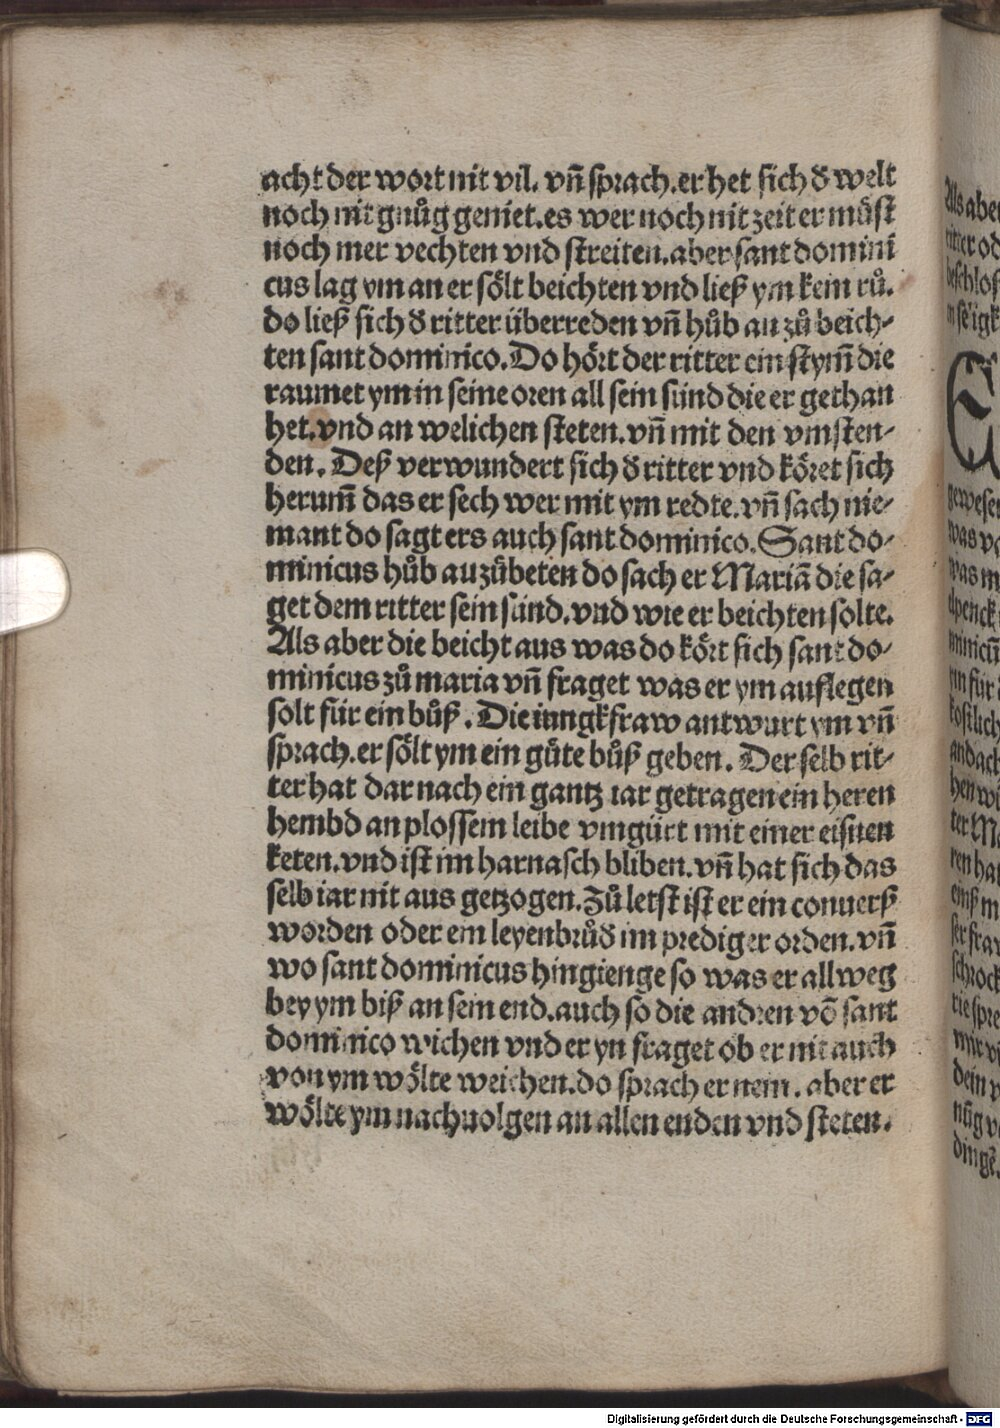 acht der wort nit vil. vn̄ sprach. er het sich d̓ welt
noch nit gnůg geniet. es wer noch nit zeit er můst
noch mer vechten vnd streiten. aber sant dominī
cus lag ym an er sölt beichten vnd ließ ym kein rů.
do ließ sich d̓ ritter überreden vn̄ hůb an zů beich-
ten sant dominico. Do hört der ritter ein stym̄ die
raumet ym in seine oren all sein sünd die er gethan
het. vnd an welichen steten. vn̄ mit den vmsten-
den. Deß verwundert sich d̓ ritter vnd köret sich
herum̄ das er sech wer mit ym redte. vn̄ sach nie-
mant do sagt ers auch sant dominico. Sant do-
minicus hůb an zůbeten do sach er Mariā die sa-
get dem ritter sein sünd. vnd wie er beichten solte.
Als aber die beicht aus was do kört sich sant do-
minicus zů maria vn̄ fraget was er ym auflegen
solt für ein bůß. Die iungkfraw antwurt ym vn̄
sprach. er sölt ym ein gůte bůß geben. Der selb rit-
ter hat dar nach ein gantz iar getragen ein heren
hembd an plossem leibe vmgürt mit einer eisnen
keten. vnd ist im harnasch bliben. vn̄ hat sich das
selb iar nit aus getzogen. Zů letst ist er ein conuerß
worden oder ein leyenbrůd̓ im prediger orden. vn̄
wo sant dominicus hingienge so was er allweg
bey ym biß an sein end. auch so die andren vō sant
dominico wichen vnd er yn fraget ob er nit auch
von ym wölte weichen. do sprach er nein. aber er
wölte ym nachuolgen an allen enden vnd steten.
Digitalisierung gefördert durch die Deutsche Forschungsgemeinschaft - DFG